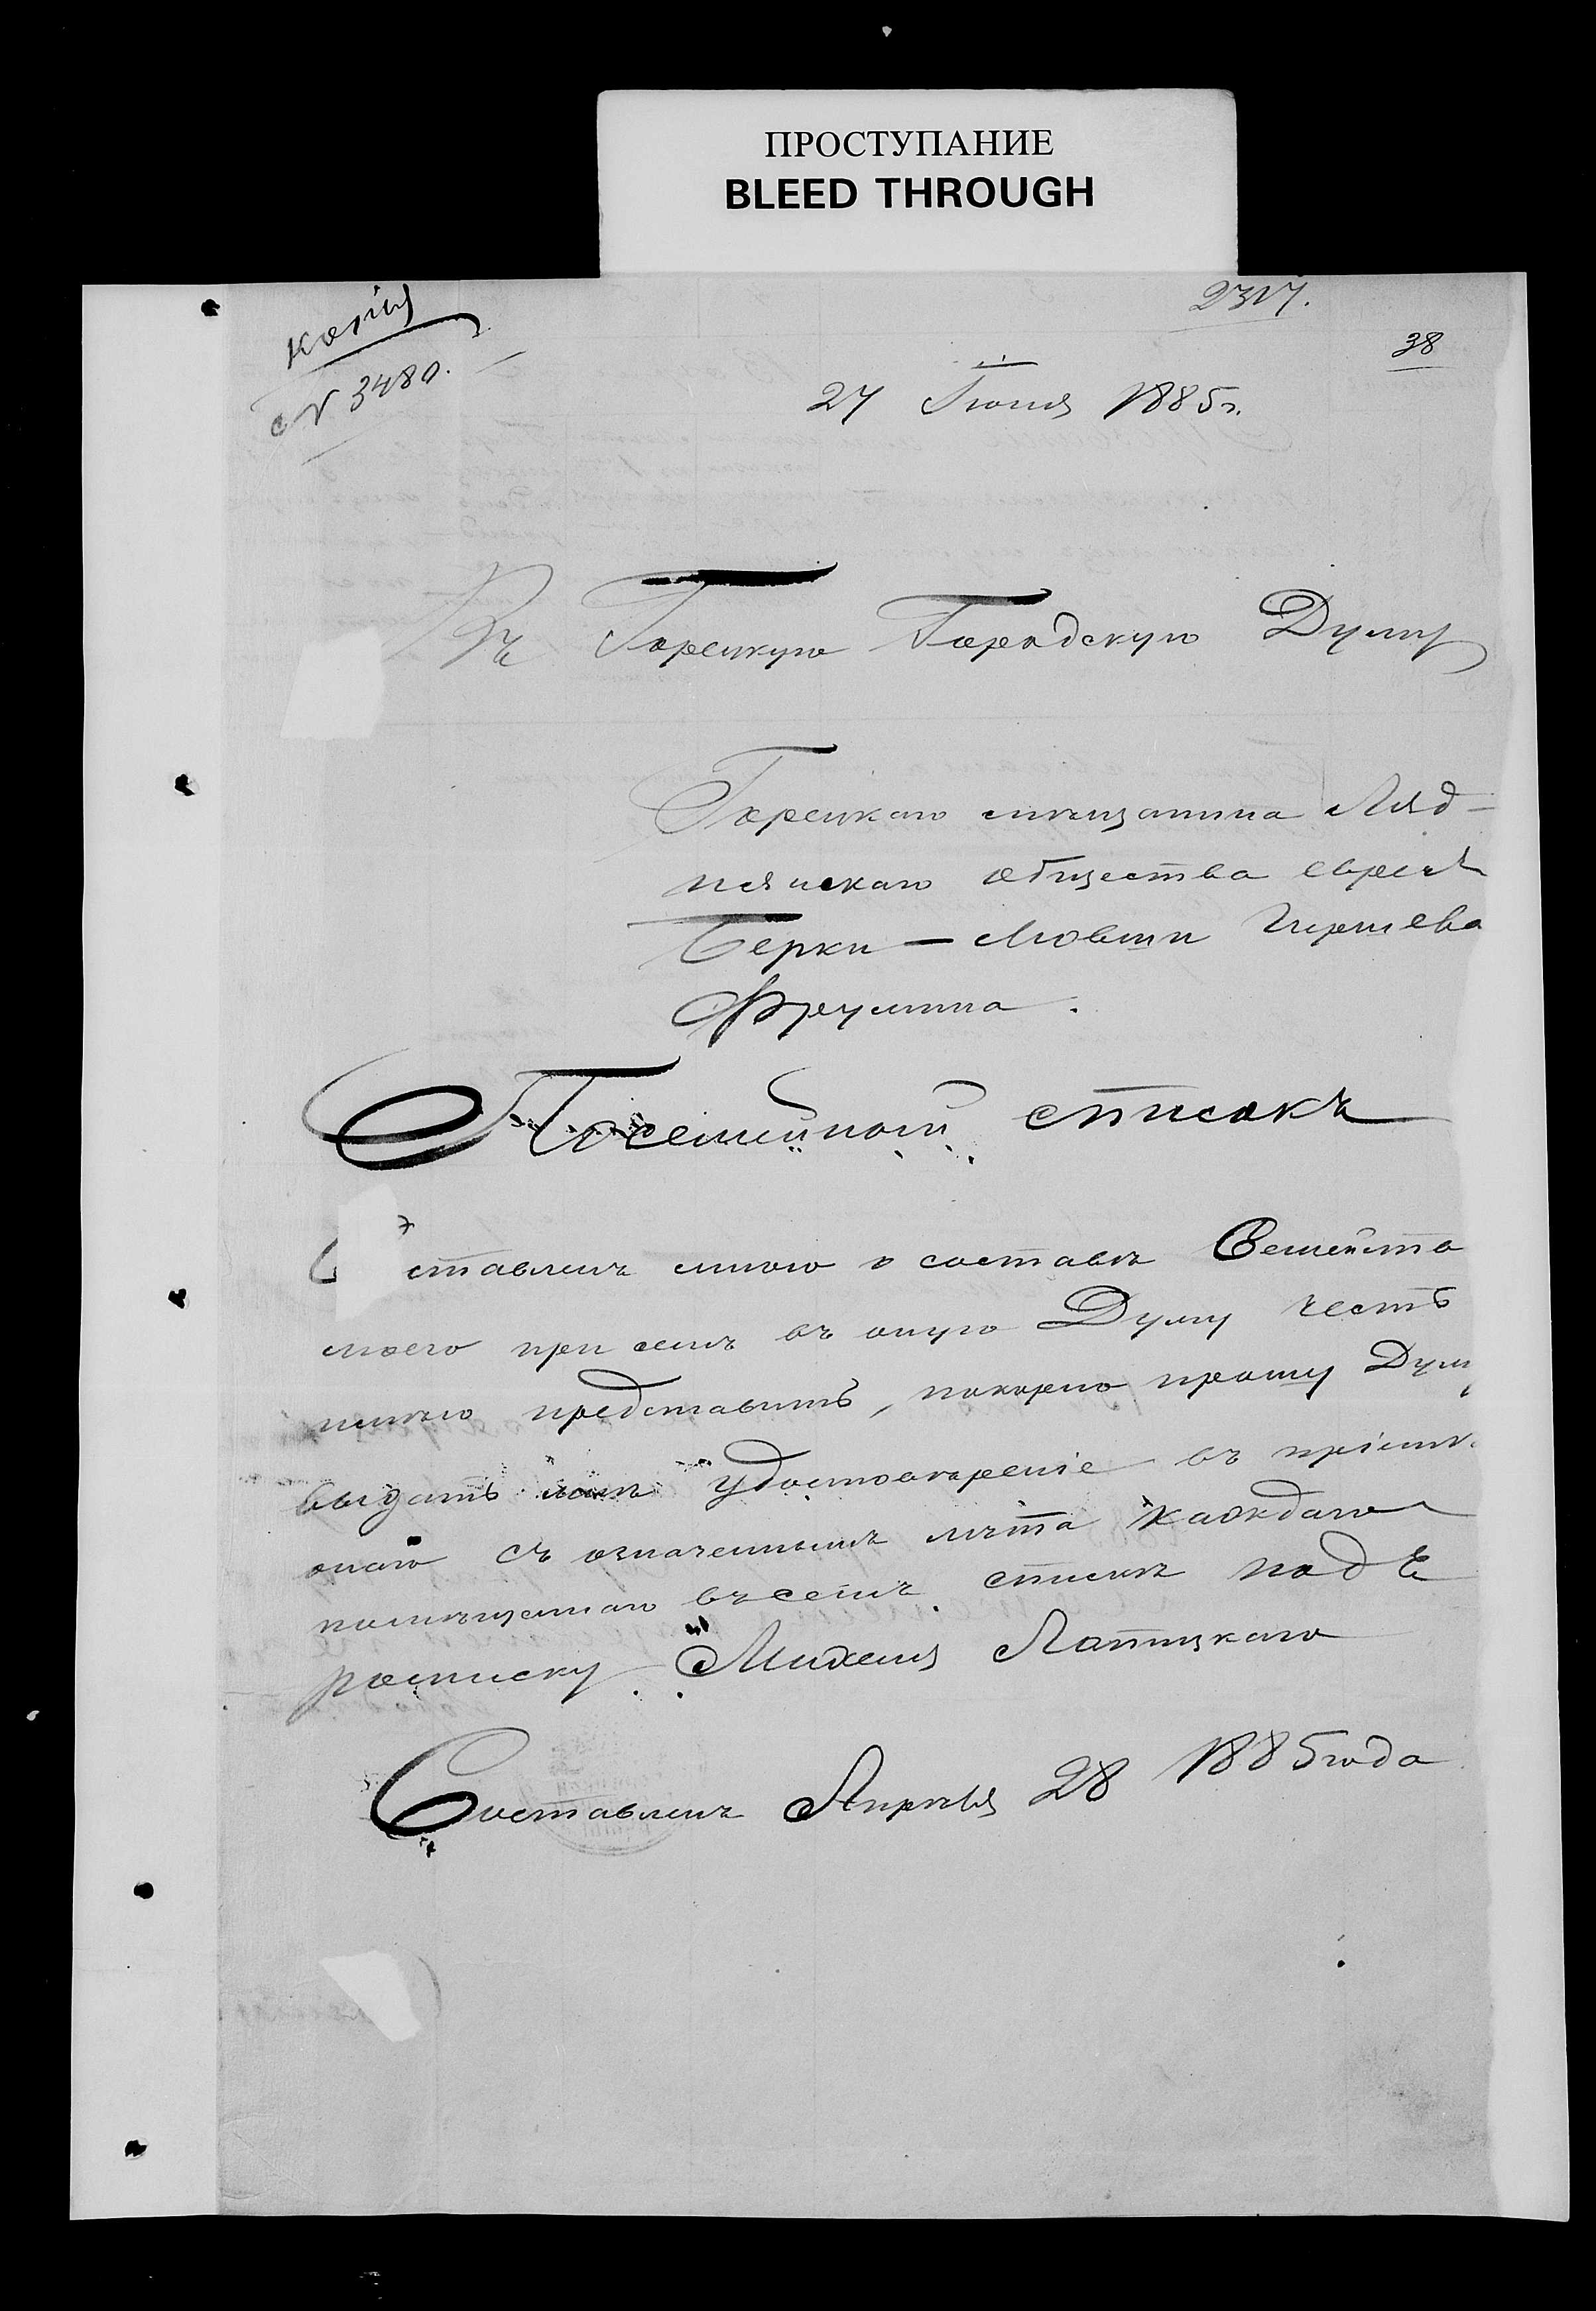 ПРОСТУПАНИЕ
BLEED THROUGH
Копія
№ 3480.
2317.
38
27 Іюня 1885 г.
Въ Горецкую Городскую Думу
Горецкаго мѣщанина Ляд-
нянскаго общества еврея
Берки - Мовши Гиршева
Фрумина.
Посемейный списокъ
Составленъ мною о составѣ Семейства
моего при семъ въ оную Думу честь
имѣю представить, покорно прошу Думу
выдать мнѣ удостовѣреніе въ пріемѣ
онаго съ означеніемъ лѣта каждаго
помѣщеннаго въ семъ спискѣ подъ
росписку Михеля Лапицкаго
Составленъ Апрѣля 28 1885 года